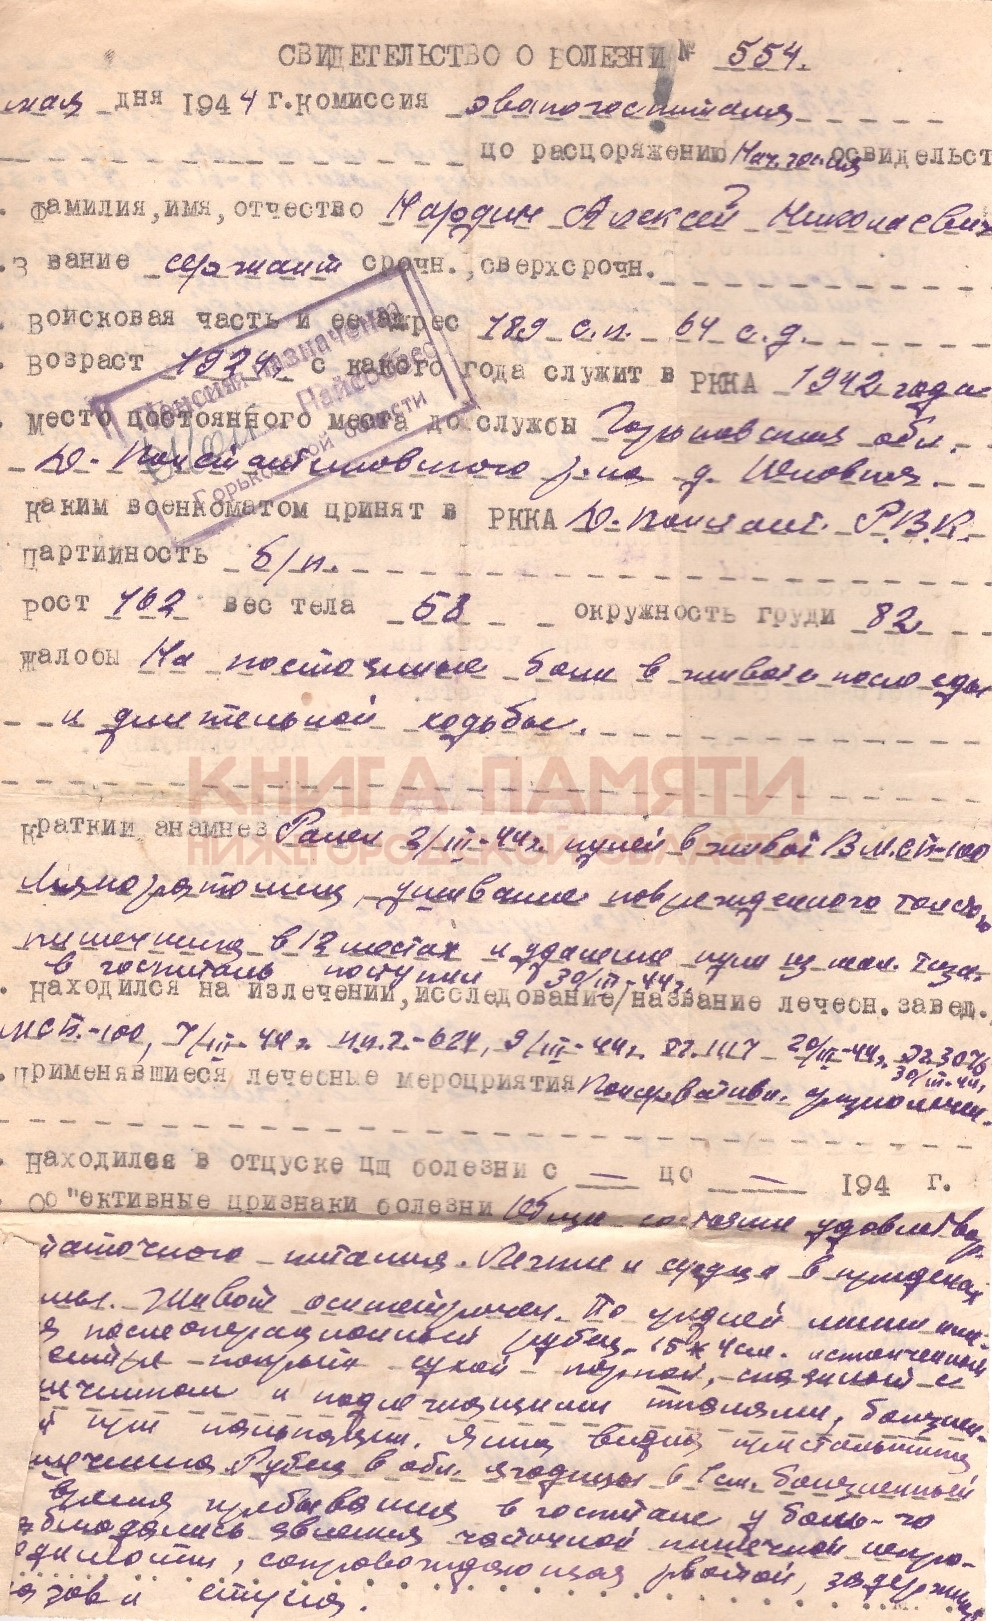 СВИДЕТЕЛЬСТВО О БОЛЕЗНИ № 554.
мая дня 1944 г. Комиссия эвакогоспиталя
по распоряжению Нач. госпиталя освидельст
. Фамилия, имя, отчество Мардин Алексей Николаевич
. Звание сержант срочн., сверхсрочн.
. Войсковая часть и ее адрес 189 с.п. 64 с.д.
. Возраст 1924 с какого года служит в РККА 1942 года
Место постоянного места до службы Горьковская обл.
Д-Константиновского р-на д.
Каким военкоматом принят в РККА Д-Констант. Р.В.К.
Партийность б/п.
Рост 162 вес тела 58 окружность груди 82
Жалобы На постоянные боли в животе после еды
и длительной ходьбы.
КНИГА ПАМЯТИ
НИЖЕГОРОДСКОЙ ОБЛАСТИ
Краткий анамнез Ранен 2/III-44г. пулей в живот В МСБ-100
Лапаротомия, ушивание поврежденного толстого
кишечника в 12 местах и удаление пули из мал. таза.
в госпиталь поступил 30/III-44г.
. Находился на излечении, исследование/название лечебн. завед.
МСБ-100, 7/III-44г. п.п.г.-624, 9/III-44г. ЭГ 1117 20/III-44г. ЭГ 3076
30/III-44г.
. Применявшиеся лечебные мероприятия Консервативн. физиолечен.
. Находился в отпуске по болезни с — по — 194 г.
. Об"ективные признаки болезни Общее состояние удовлетвор.
таточного питания. Легкие и сердце в пределах
мы. Живот асимметричен. По средней линии
я послеоперационный рубец 15 х 4см. истонченный
центре покрыт сухой коркой, спаянный с
шечником и подлежащими тканями, болезнен-
й при пальпации. Ясно видна перистальтика
шечника Рубец в обл. ягодицы в 1см. болезненный
Время пребывания в госпитале у боль-го
аблюдались явления частичной кишечной непро-
одимости, сопровождающая рвотой, задержкой
газов и стула.
Пенсия назначена
Райсобесом
Горьковской области